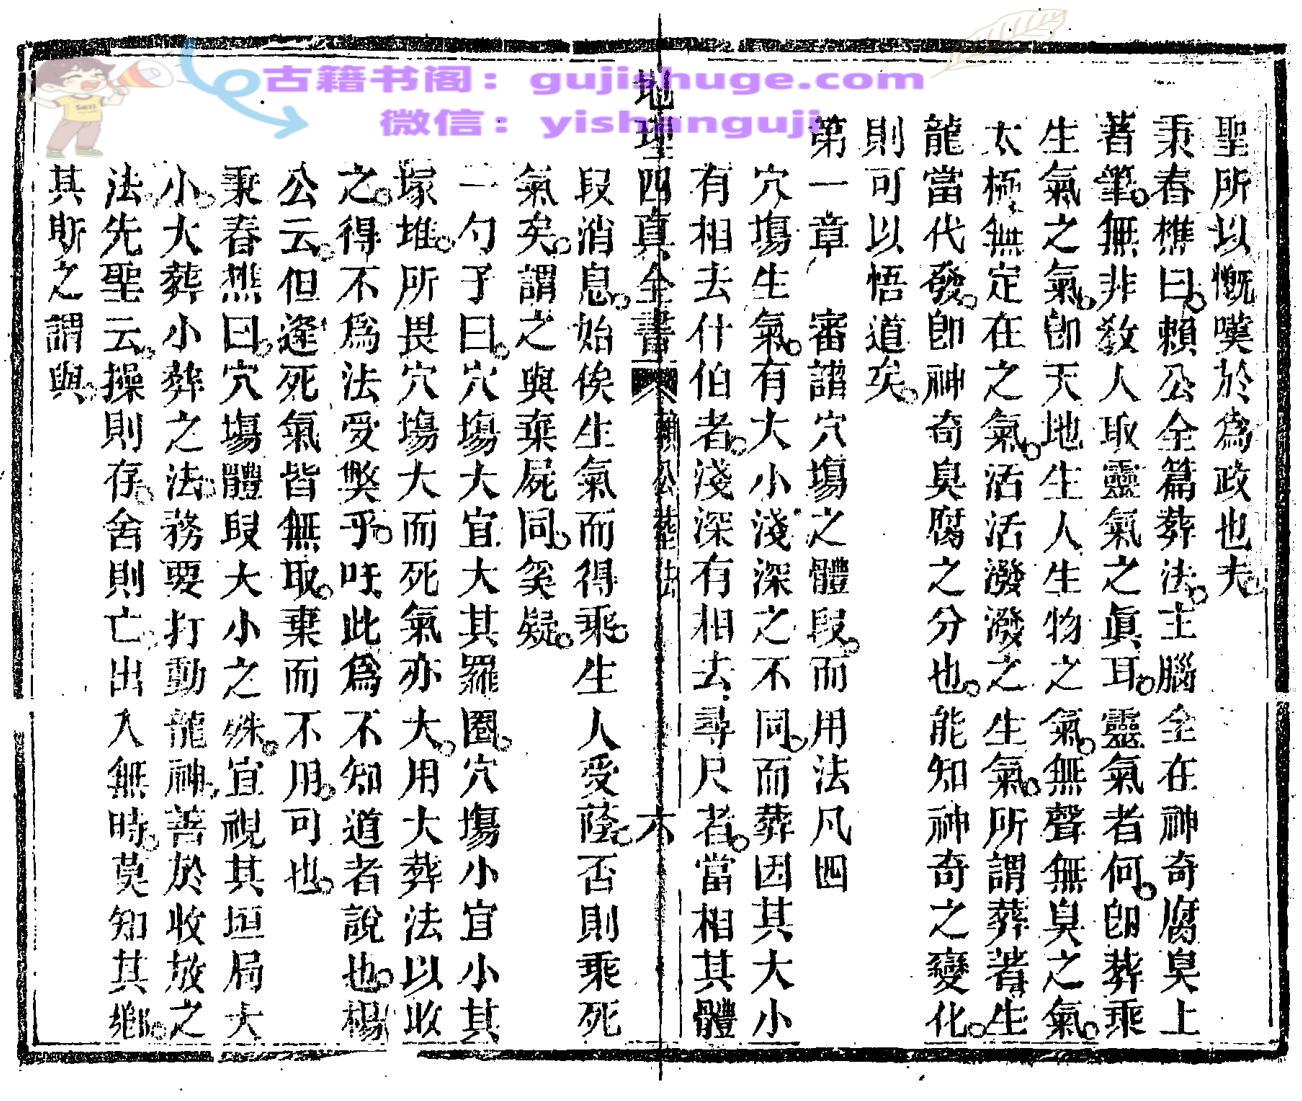 聖所以慨嘆於為政也夫
秉春樵曰賴公全篇葬法主腦全在神奇腐臭上
著筆無非教人取靈氣之眞耳靈氣者何卽葬乘
生氣之氣卽天地生人生物之氣無聲無臭之氣
太極無定在之氣活活潑潑之生氣所謂葬著生
龍當代發卽神奇臭腐之分也能知神奇之變化
則可以悟道矣
第一章 審諳穴塲之體段而用法凡四
穴塲生氣有大小淺深之不同而葬因其大小
有相去什伯者淺深有相去尋尺者當相其體
地理四真全書 賴公葬法 六
段消息始俟生氣而得乘生人受蔭否則乘死
氣矣謂之與棄屍同奚疑
一勺子曰穴塲大宜大其羅圈穴塲小宜小其
塚堆所畏穴塲大而死氣亦大用大葬法以收
之得不爲法受獘乎吁此爲不知道者說也楊
公云但逢死氣皆無取棄而不用可也
秉春樵曰穴塲體段大小之殊宜視其垣局大
小大葬小葬之法務要打動龍神善於收放之
法先聖云操則存舍則亡出入無時莫知其鄉
其斯之謂與
古籍书阁：gujishuge.com
微信：yishanguji